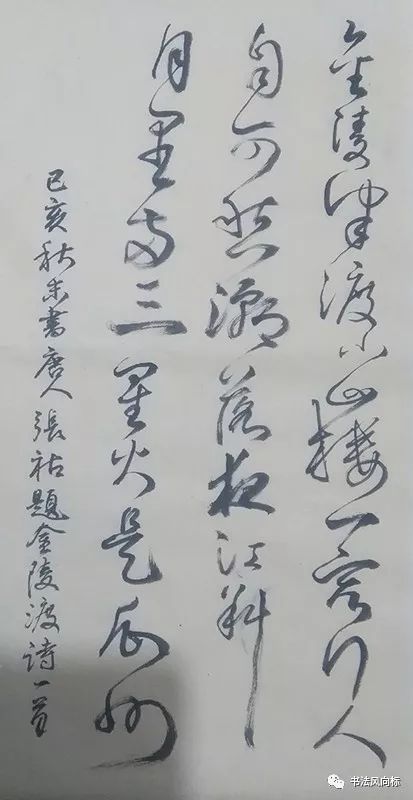 金陵津渡小山樓一宿行人
自可愁潮落夜江斜
月里兩三星火是瓜州
己亥秋末書唐人張祜題金陵渡詩一首
书法风向标